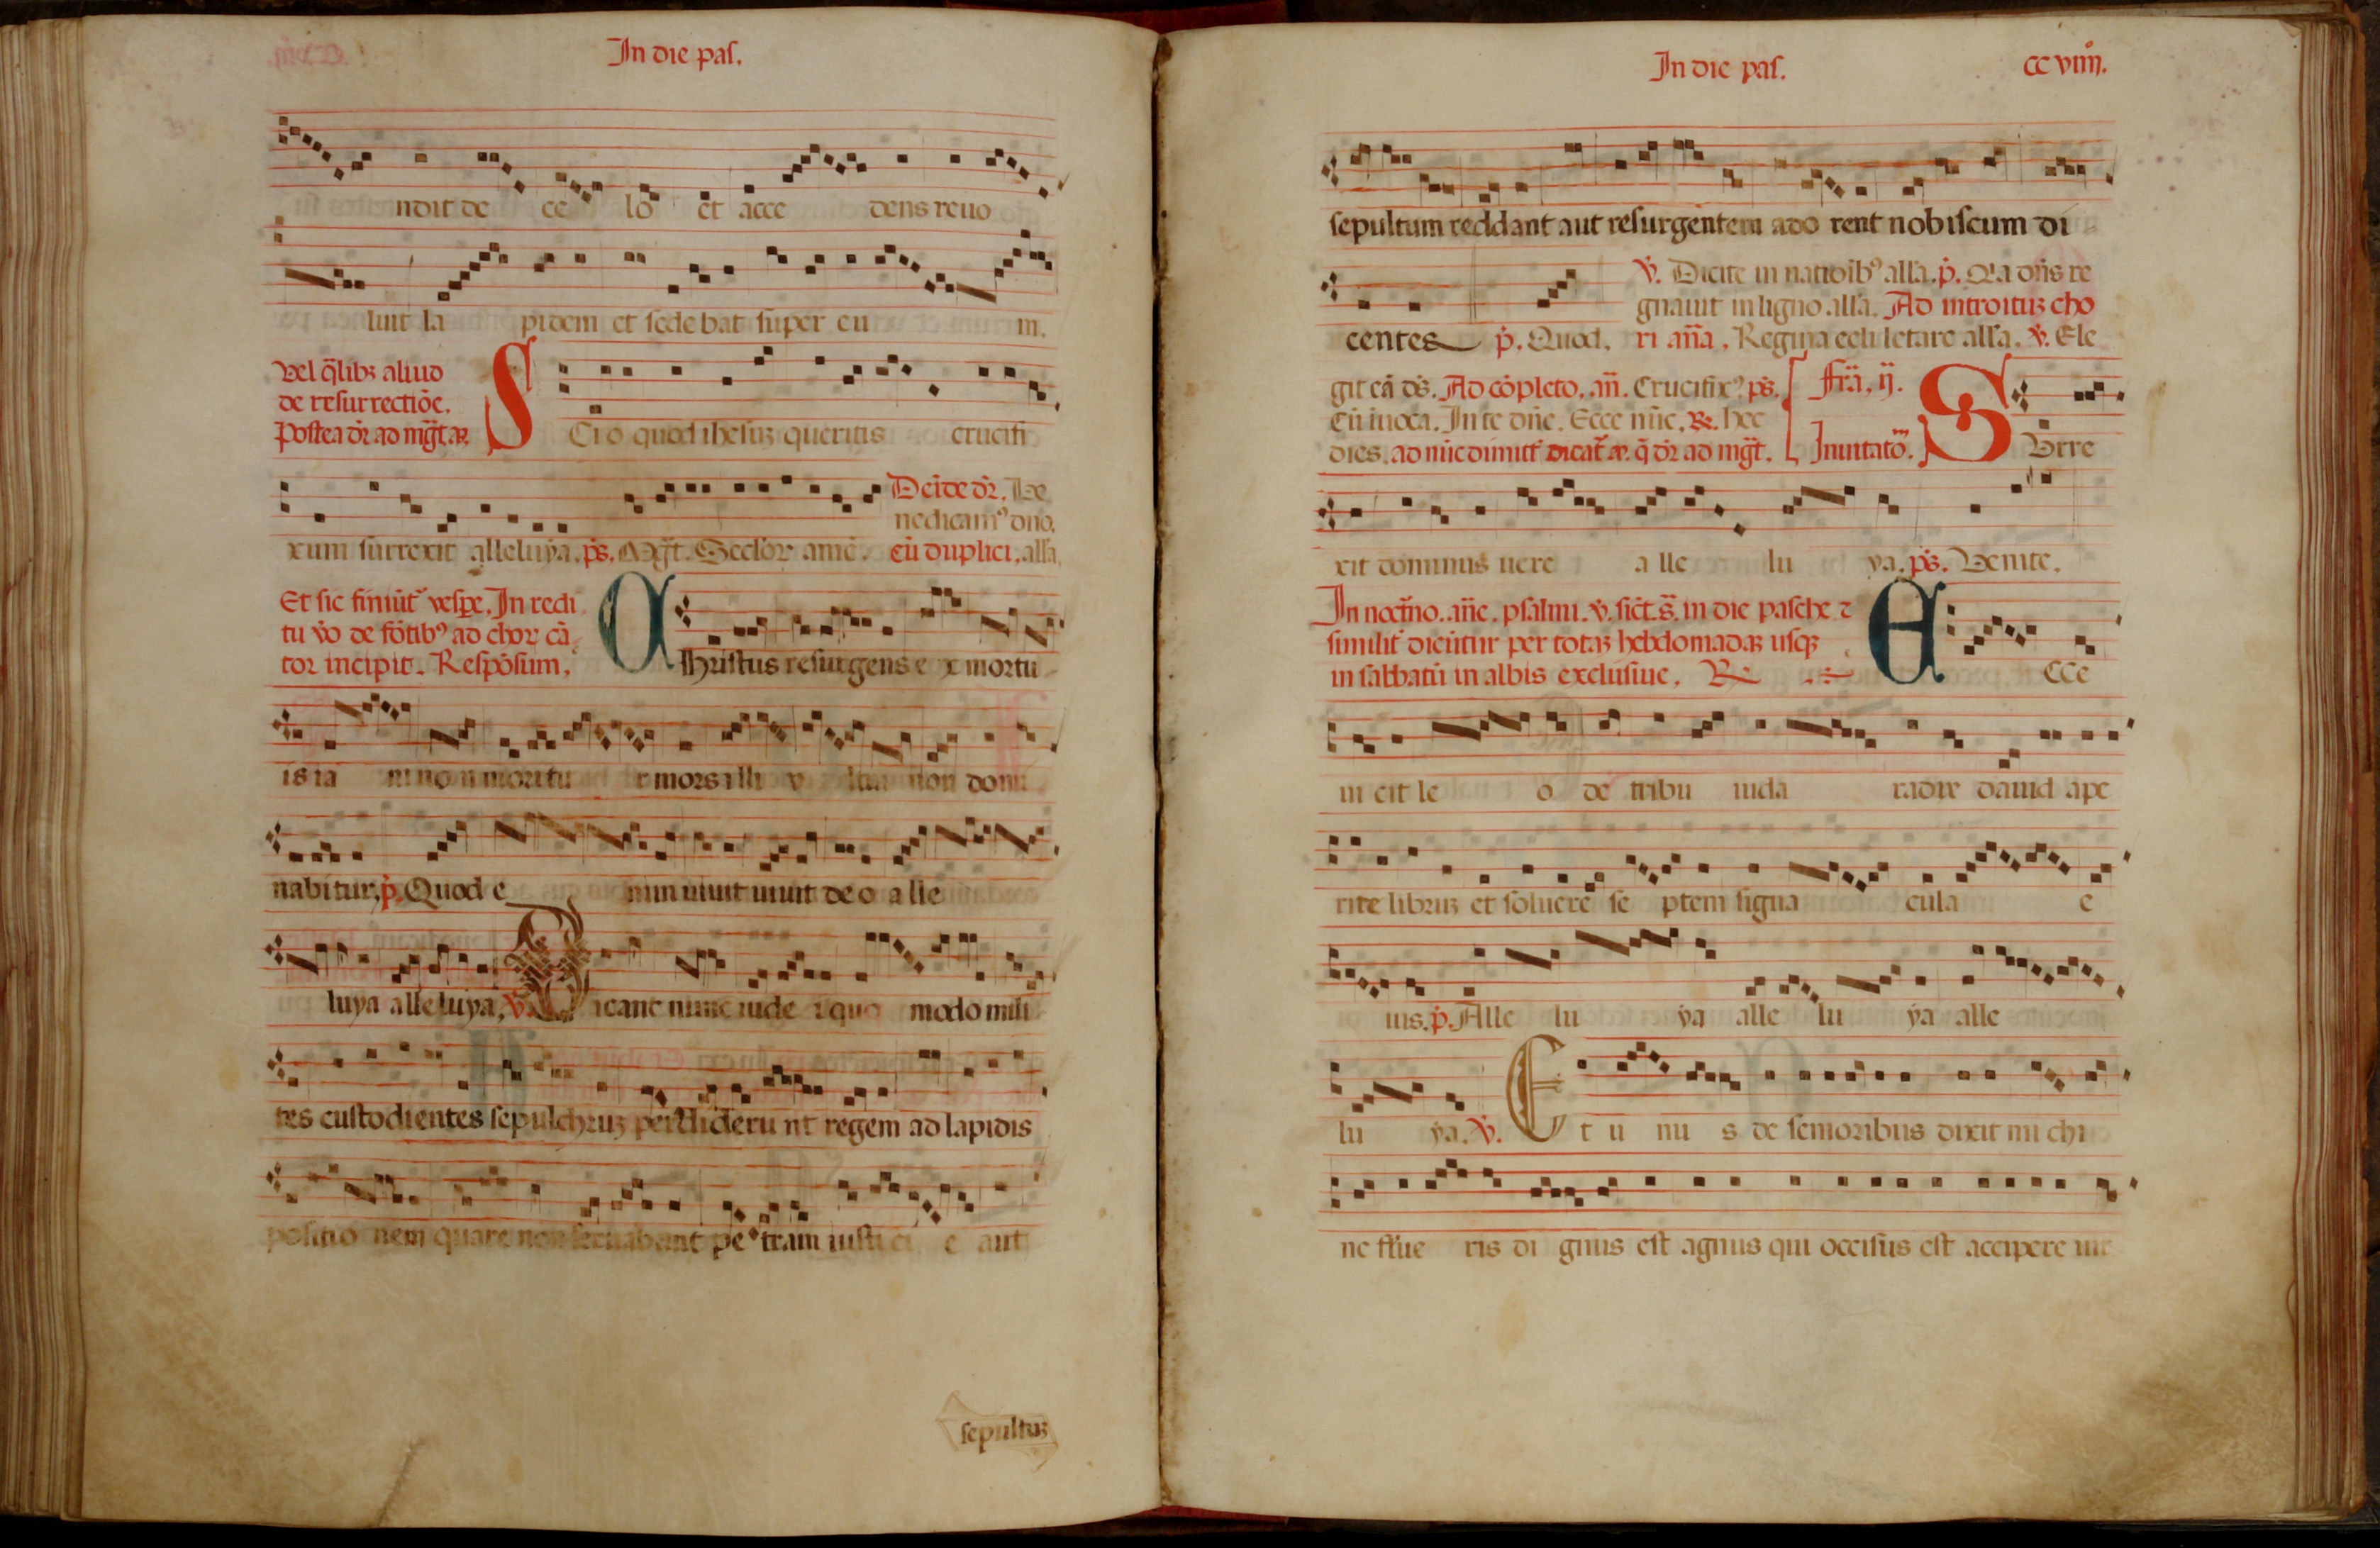 In die pas.
ndit de ce lo et acce dens reuo
luit la pidem et sede bat super eu m.
Vel q̄libꝫ aliud
de resurrectiōe.
Postea dr̄ ad mḡt. aꝶ
S Cio quod ihesuꝫ queritis crucifi
xum surrexit alleluya. p̄s. Mḡt. Seclor̄ amē.
Deīde dr̄. Be
nedicamꝰ dn̄o.
cū duplici. all̄a.
Et sic finiūt̄ vesp̄e. In redi
tu v̄o de fōtibꝰ ad chor̄ cā
tor incipit. Respōsum.
Christus resurgens e x mortu
is ia m no n moritu r mors illi v ltra non domi
nabitur. p̄. Quod e nim uiuit uiuit de o a lle
luya alleluya. v̄. Dicant nunc iude i quo modo mili
tes custodientes sepulchruꝫ perdideru nt regem ad lapidis
positio nem quare non seruabant pe tram iusti ci e aut
sepultuꝫ
In die pas.
cc viiij.
sepultum reddant aut resurgentem ado rent nobiscum di
centes p̄. Quod.
v̄. Dicite in natiōibꝰ all̄a. p̄. Q'a dn̄s re
gnauit in ligno all̄a. Ad introituꝫ cho
ri an̄a. Regina celi letare all̄a. v̄. Ele
git eā ds̄. Ad cōpleto. an̄. Crucifixꝰ. ps̄.
Cū īuoca. In te dn̄e. Ecce nūc. ℞. hec
dies. ad nūc dimitt̄ dicat̄ ꝶ. q̄ dr̄ ad mḡt.
fr̄ā. ij.
Inuitatō.
S Vrre
xit dominus uere a lle lu ya. p̄s. Venite.
In noct̄no. an̄e. psalmi. v̄. sic̄t. s̄. in die pasche ⁊
similit̄ dicūtur per totaꝫ hebdomadaꝫ usqꝫ
in sabbatū in albis exclusiue. ℞
E CCe
ui cit le o de tribu iuda radix dauid ape
rite libruꝫ et soluere se ptem signa cula e
ius. p̄. Alle lu ya alle lu ya alle
lu ya. v̄. E t u nu s de senioribus dixit mi chi
ne fleue ris di gnus est agnus qui occisus est accipere uir